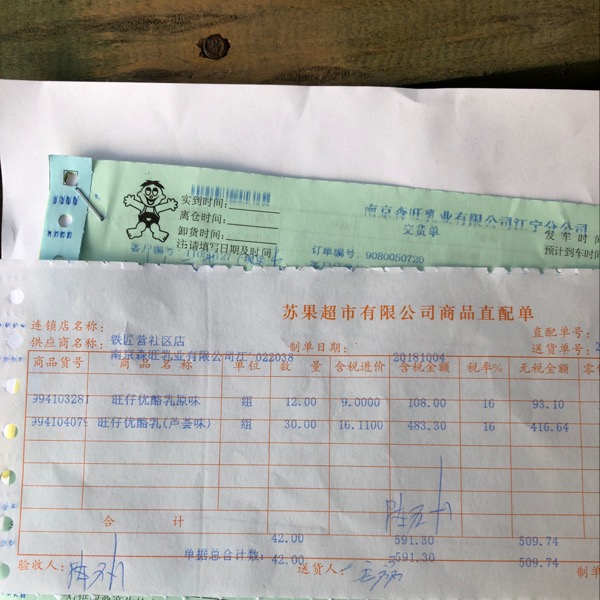 实到时间：
离仓时间：
卸货时间：
注:请填写日期及时间
南京森旺乳业有限公司江宁分公司
交货单
发车时间
预计到车时间
客户编号：
订单编号：9080050720
苏果超市有限公司商品直配单
连锁店名称： 铁匠营社区店
直配单号：
供应商名称： 南京森旺乳业有限公司江 022038 制单日期： 20181004
送货单号：
商品货号 商品名称 单位 数量 含税进价 含税金额 税率% 无税金额
994103281 旺仔优酪乳原味 组 12.00 9.0000 108.00 16 93.10
994104079 旺仔优酪乳(芦荟味) 组 30.00 16.1100 483.30 16 416.64
合计 42.00 591.30 509.74
单据总合计数： 42.00 591.30 509.74
验收人： 送货人： 制单